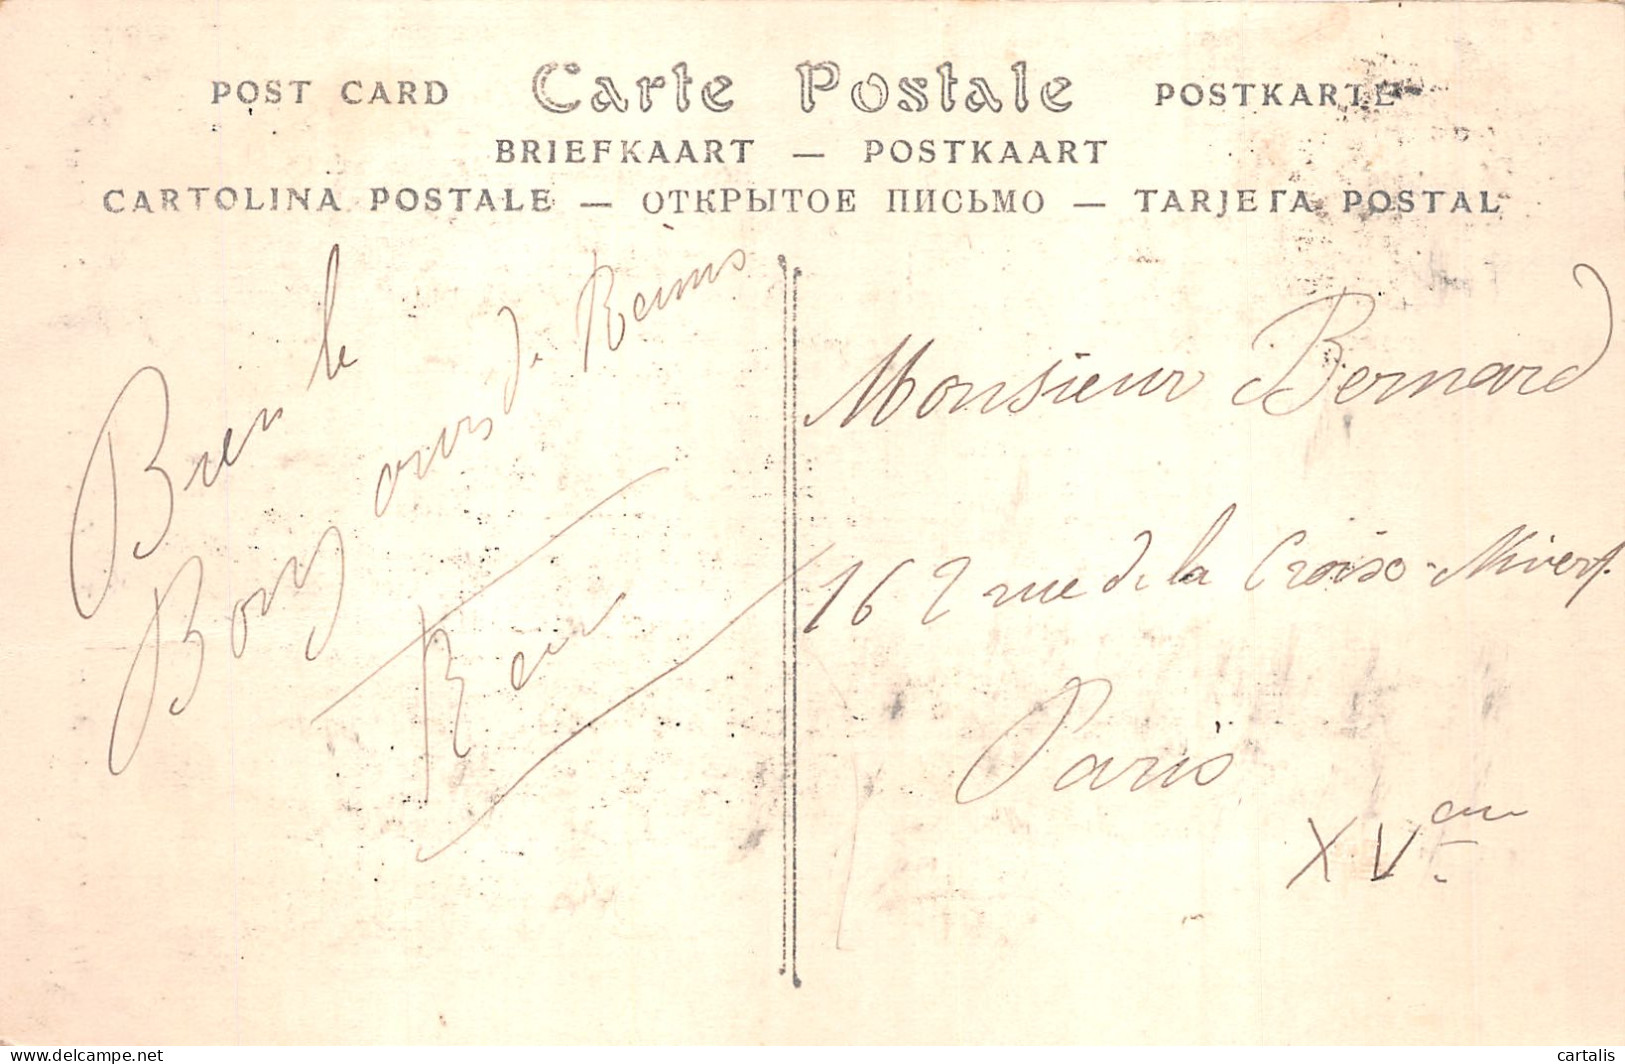 POST CARD Carte Postale POSTKARTE
BRIEFKAART — POSTKAART
CARTOLINA POSTALE — ОТКРЫТОЕ ПИСЬМО — TARJETA POSTAL
Bien le
Bonjours de Reims
Monsieur Bernard
162 rue de la Croise-Nivert.
Paris
XVem
www.delcampe.net
cartalis